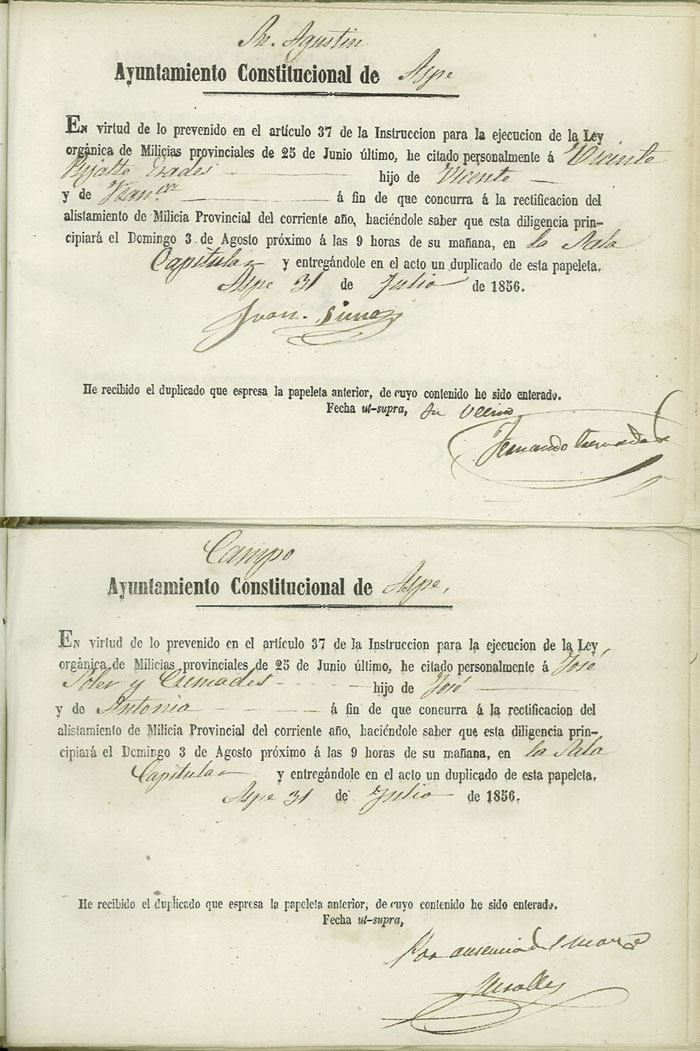 Sn. Agustin
Ayuntamiento Constitucional de Aspe
En virtud de lo prevenido en el artículo 37 de la Instruccion para la ejecucion de la Ley
orgánica de Milicias provinciales de 25 de Junio último, he citado personalmente á Vicente
hijo de Vicente
y de Fran.ca á fin de que concurra á la rectificacion del
alistamiento de Milicia Provincial del corriente año, haciéndole saber que esta diligencia prin-
cipiará el Domingo 3 de Agosto próximo á las 9 horas de su mañana, en la Sala
Capitular y entregándole en el acto un duplicado de esta papeleta.
Aspe 31 de Julio de 1856.
Juan
He recibido el duplicado que espresa la papeleta anterior, de cuyo contenido he sido enterado.
Fecha ut-supra, Su vecino
Fernando
Campo
Ayuntamiento Constitucional de Aspe,
En virtud de lo prevenido en el artículo 37 de la Instruccion para la ejecucion de la Ley
orgánica de Milicias provinciales de 25 de Junio último, he citado personalmente á José
Soler y Cremades hijo de José
y de Antonia á fin de que concurra á la rectificacion del
alistamiento de Milicia Provincial del corriente año, haciéndole saber que esta diligencia prin-
cipiará el Domingo 3 de Agosto próximo á las 9 horas de su mañana, en la Sala
Capitular y entregándole en el acto un duplicado de esta papeleta.
Aspe 31 de Julio de 1856.
He recibido el duplicado que espresa la papeleta anterior, de cuyo contenido he sido enterado.
Fecha ut-supra,
Por ausencia
Miralles